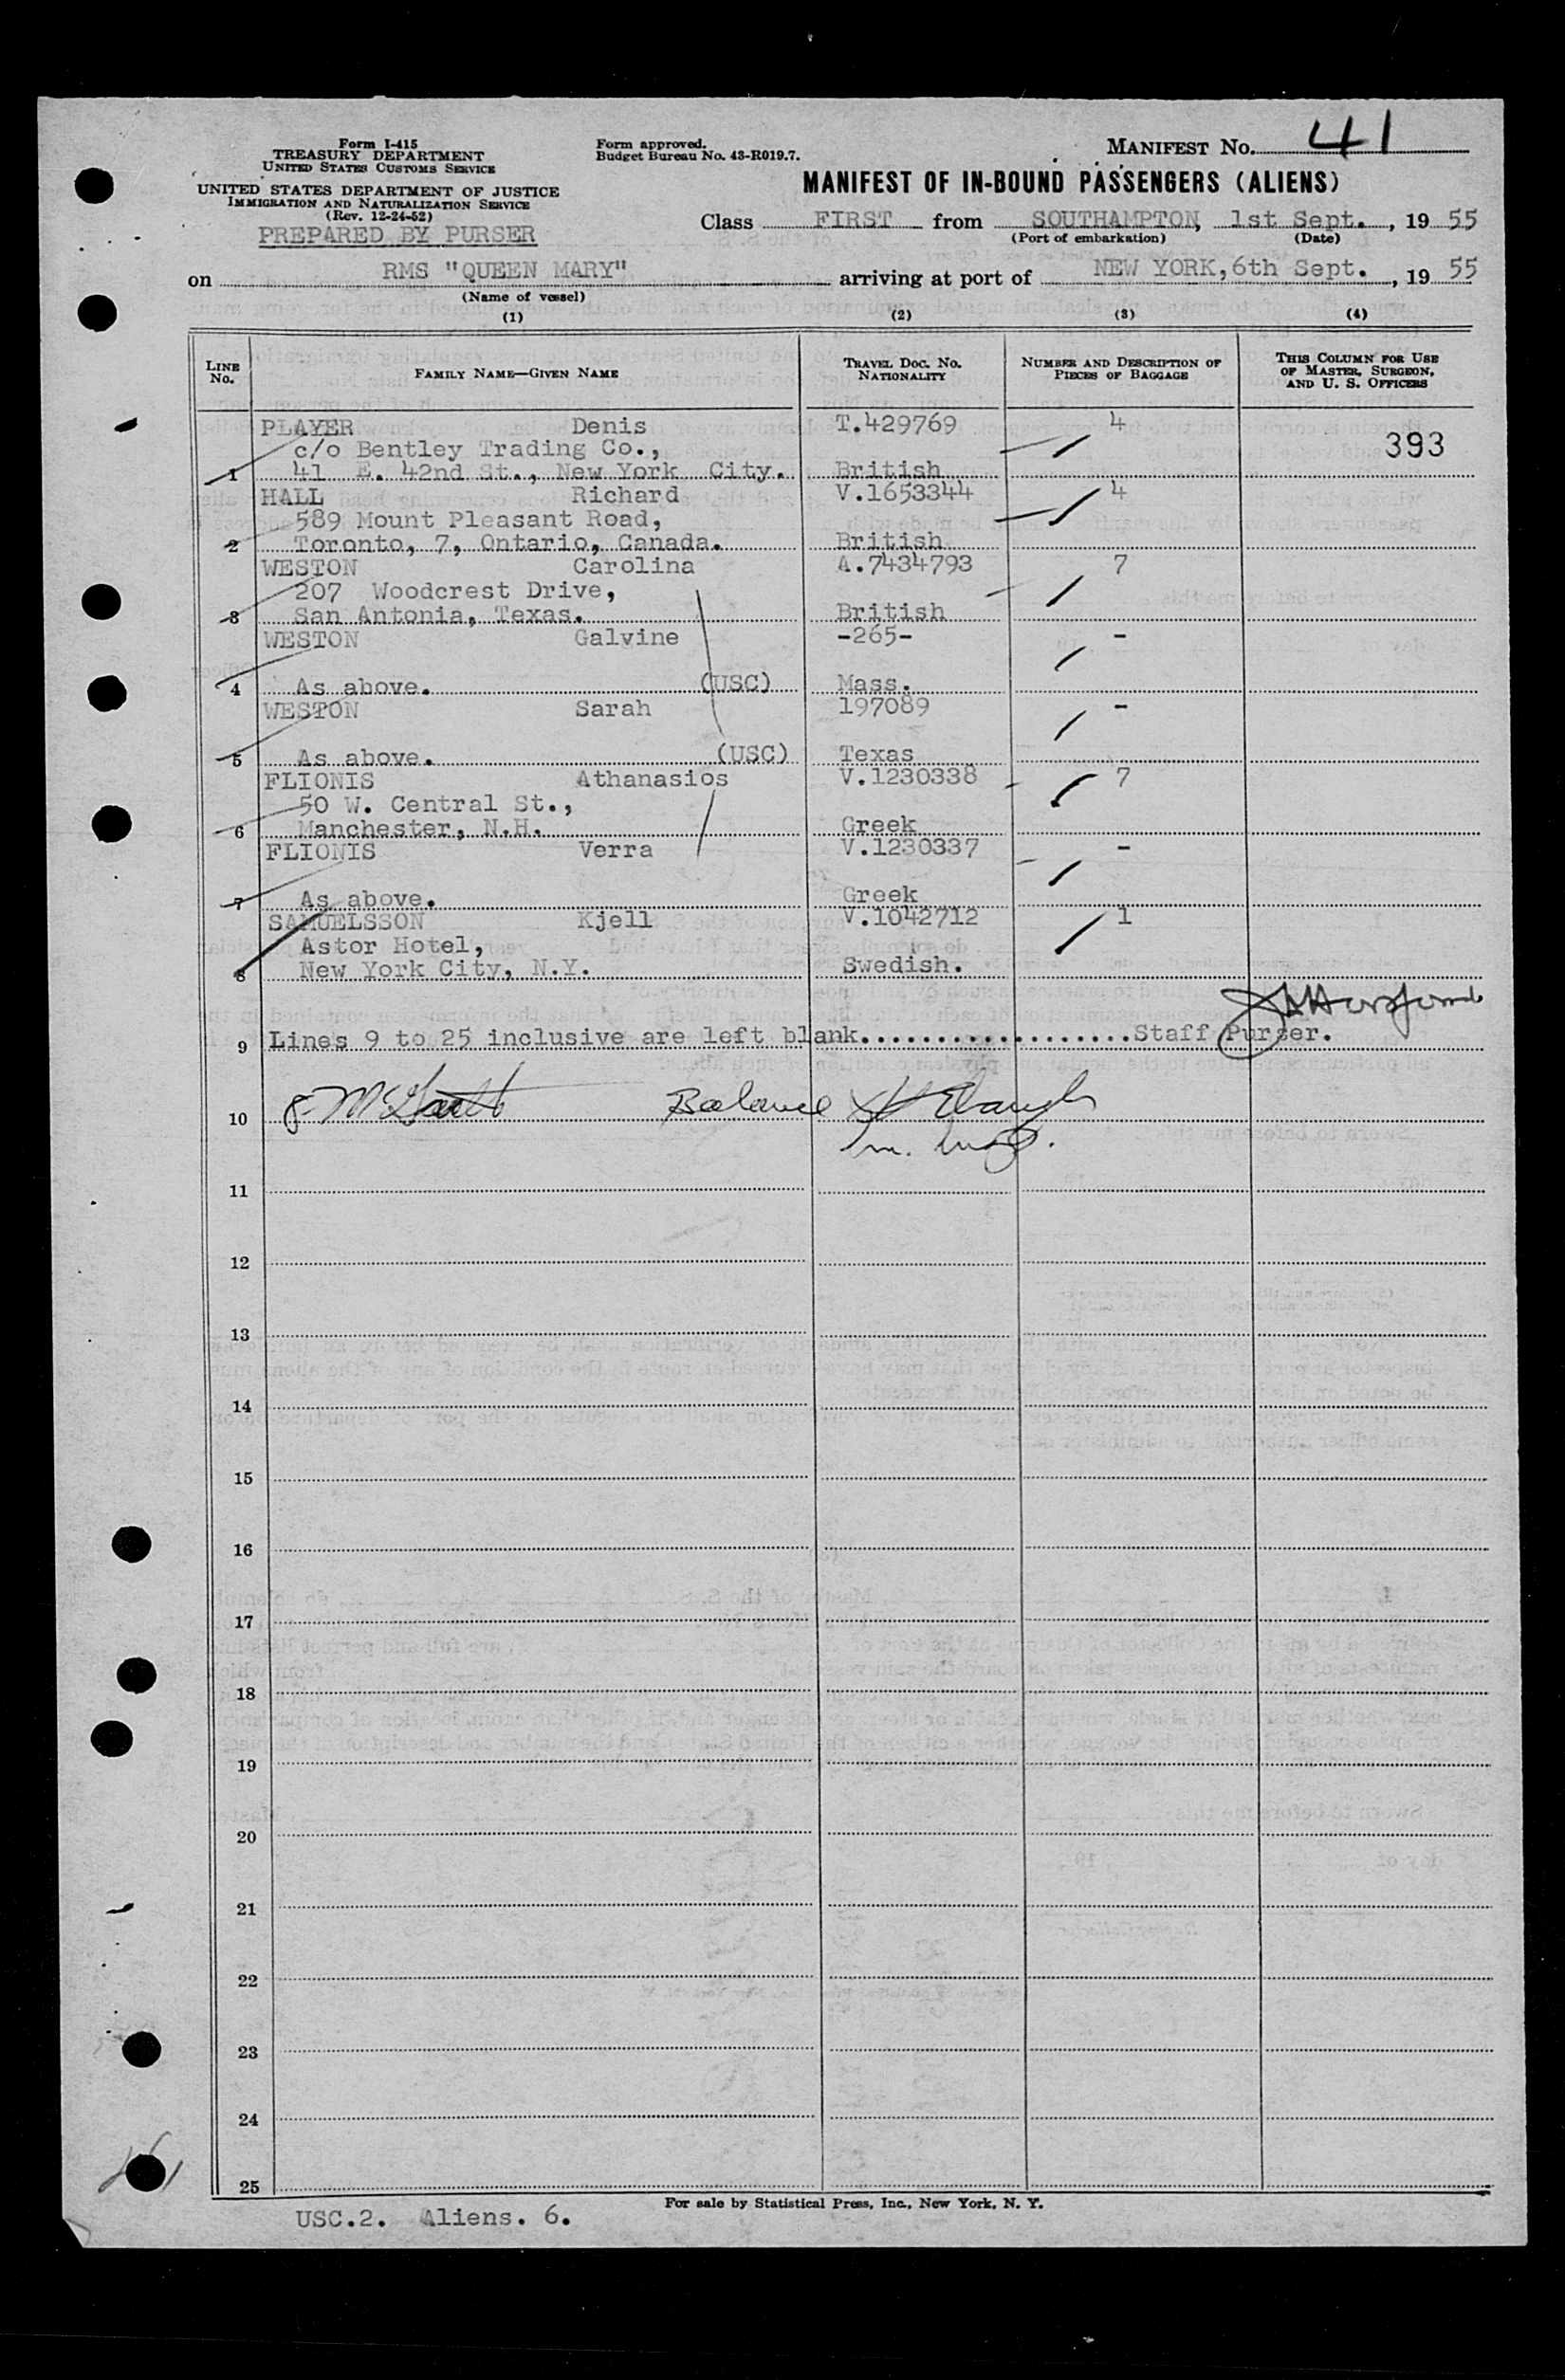 Form I-415
TREASURY DEPARTMENT
UNITED STATES CUSTOMS SERVICE
UNITED STATES DEPARTMENT OF JUSTICE
IMMIGRATION AND NATURALIZATION SERVICE
(Rev. 12-24-52)
PREPARED BY PURSER
Form approved.
Budget Bureau No. 43-R019.7.
MANIFEST NO. 41
MANIFEST OF IN-BOUND PASSENGERS (ALIENS)
Class FIRST from SOUTHAMPTON, 1st Sept., 19 55
(Port of embarkation) (Date)
on RMS "QUEEN MARY" arriving at port of NEW YORK, 6th Sept., 19 55
(Name of vessel)
(1) (2) (3) (4)
LINE NO. FAMILY NAME—GIVEN NAME TRAVEL DOC. NO. NATIONALITY NUMBER AND DESCRIPTION OF PIECES OF BAGGAGE THIS COLUMN FOR USE OF MASTER, SURGEON, AND U. S. OFFICERS
PLAYER Denis T.429769 4
c/o Bentley Trading Co., 393
1 41 E. 42nd St., New York City. British
HALL Richard V.1653344 4
589 Mount Pleasant Road,
2 Toronto, 7, Ontario, Canada. British
WESTON Carolina A.7434793 7
207 Woodcrest Drive,
3 San Antonia, Texas. British
WESTON Galvine -265- -
4 As above. (USC) Mass.
WESTON Sarah 197089 -
5 As above. (USC) Texas
FLIONIS Athanasios V.1230338 7
50 W. Central St.,
6 Manchester, N.H. Greek
FLIONIS Verra V.1230337 -
7 As above. Greek
SAMUELSSON Kjell V.1042712 1
Astor Hotel,
8 New York City, N.Y. Swedish.
9 Lines 9 to 25 inclusive are left blank..................Staff Purser.
10 Balance
11
12
13
14
15
16
17
18
19
20
21
22
23
24
25
For sale by Statistical Press, Inc., New York, N. Y.
USC.2. Aliens. 6.